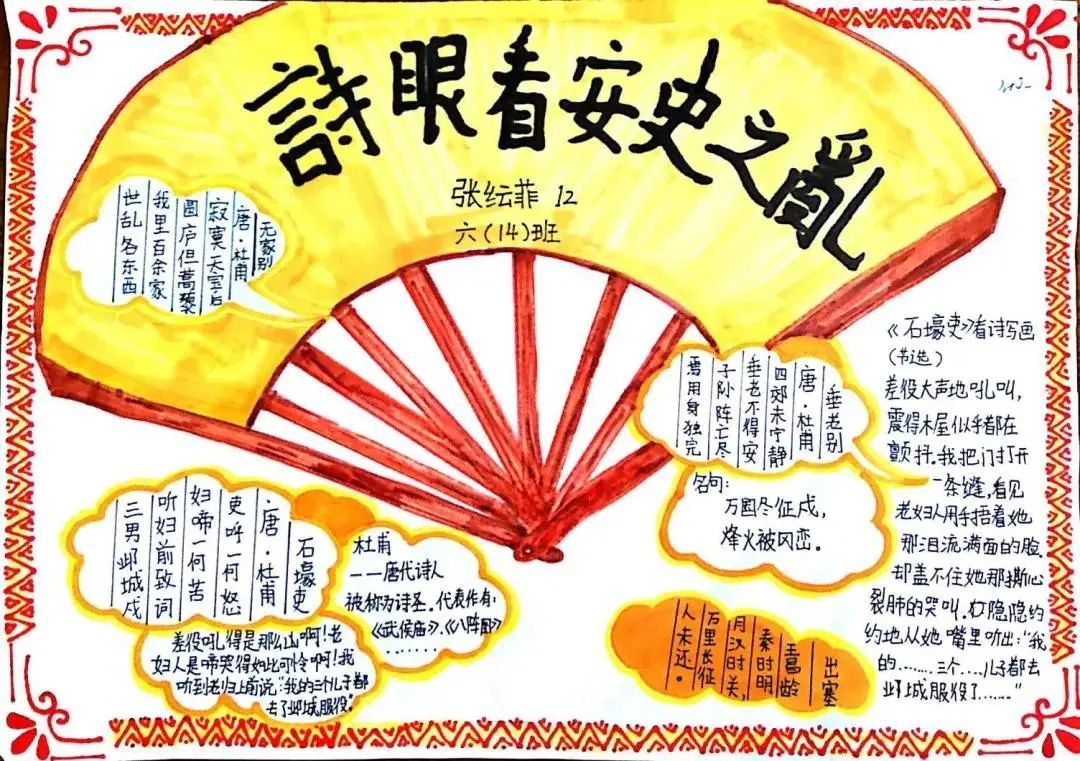 詩眼看安史之亂
张纭菲 12
六(14)班
无家别
唐·杜甫
寂寞天宝后
园庐但蒿藜
我里百余家
世乱各东西
垂老别
唐·杜甫
四郊未宁静
垂老不得安
子孙阵亡尽
焉用身独完
名句:
万国尽征戍,
烽火被冈峦。
《石壕吏》看诗写画
(节选)
差役大声地吼叫,
震得木屋似乎都在
颤抖。我把门打开
一条缝,看见
老妇人用手捂着她
那泪流满面的脸。
却盖不住她那撕心
裂肺的哭叫。仅隐隐约
约地从她嘴里听出:“我
的……三个…儿子都去
邺城服役了……”
石壕吏
·唐·杜甫
吏呼一何怒
妇啼一何苦
听妇前致词
三男邺城戍
杜甫
——唐代诗人
被称为诗圣。代表作有:
《武侯庙》、《八阵图》
……
差役吼得是那么凶啊!老
妇人是啼哭得如此可怜啊!我
听到老妇上前说:“我的三个儿子都
去了邺城服役。
出塞
王昌龄
秦时明
月汉时关,
万里长征
人未还。